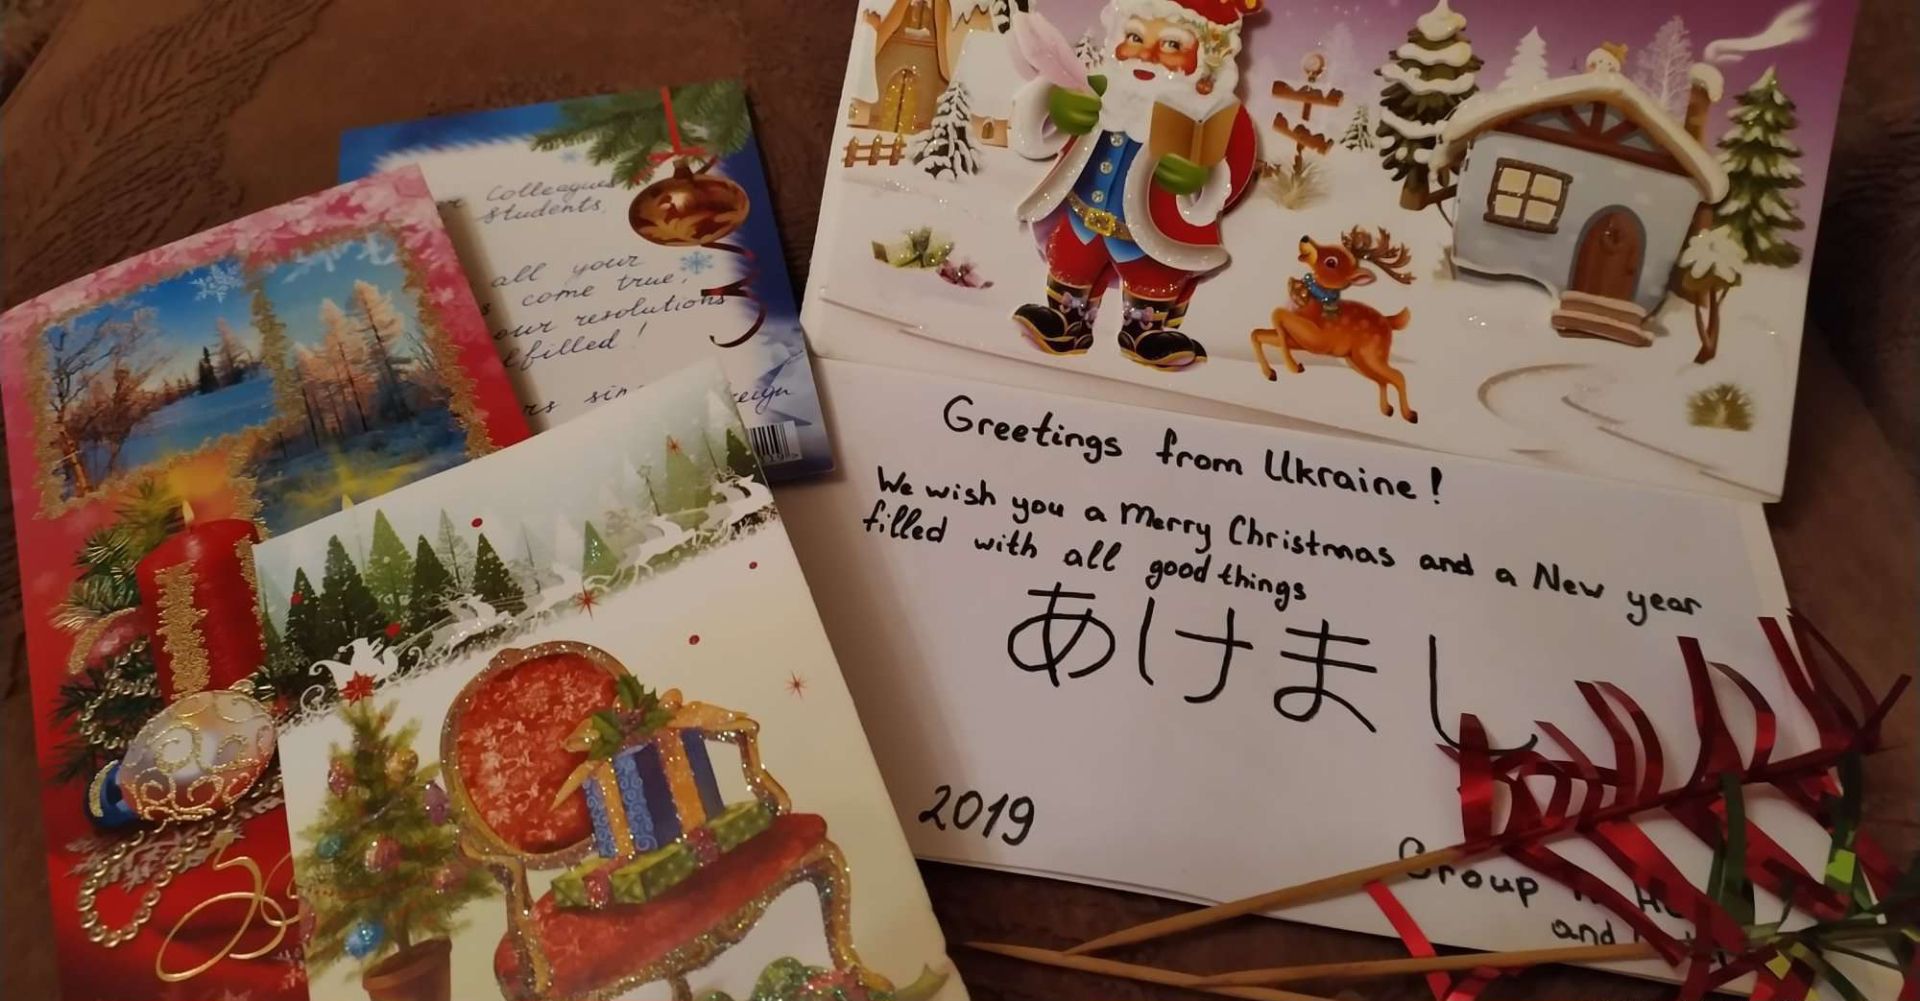 Colleagues
students,
all your
come true,
our resolutions
filled!
Greetings from Ukraine!
We wish you a Merry Christmas and a New year
filled with all good things
あけまし
2019
Group
and